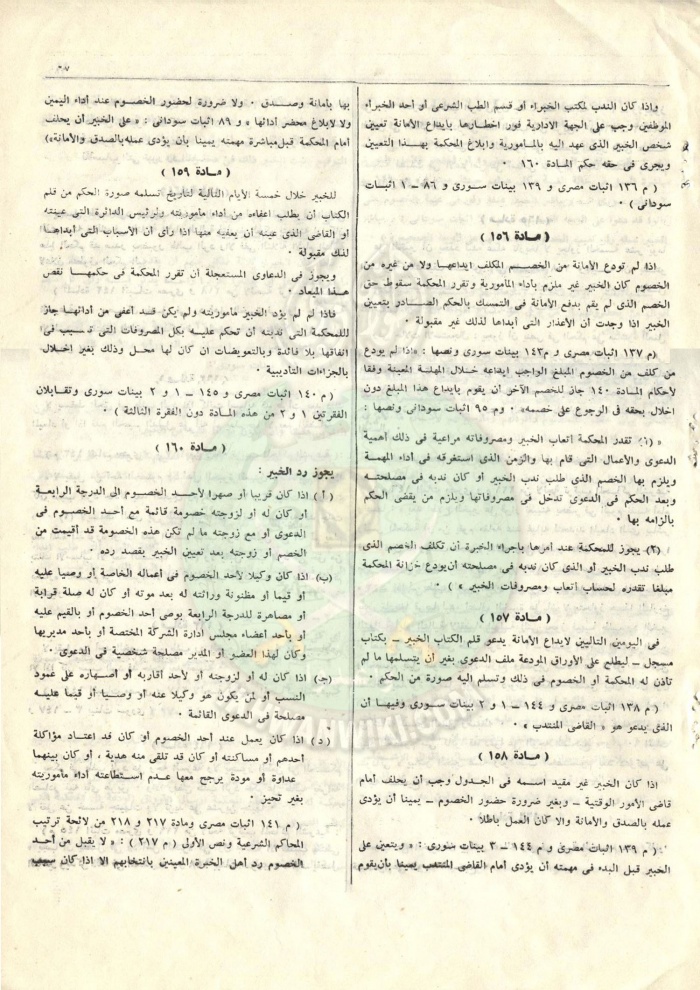 واذا كان الندب لمكتب الخبراء أو قسم الطب الشرعى أو أحد الخبراء
الموظفين وجب على الجهة الادارية فور اخطارها بايداع الأمانة تعيين
شخص الخبير الذى عهد اليه بالمأمورية وابلاغ المحكمة بهذا التعيين
ويجرى فى حقه حكم المادة ١٦٠ ٠
( م ١٣٦ اثبات مصرى و ١٣٩ بينات سورى و ٨٦ ــ ١ اثبات
سودانى ) ٠
( مادة ١٥٦ )
اذا لم تودع الأمانة من الخصم المكلف ايداعها ولا من غيره من
الخصوم كان الخبير غير ملزم بأداء المأمورية وتقرر المحكمة سقوط حق
الخصم الذى لم يقم بدفع الأمانة فى التمسك بالحكم الصادر بتعيين
الخبير اذا وجدت أن الأعذار التى أبداها لذلك غير مقبولة ٠
(م ١٣٧ اثبات مصرى و م١٤٣ بينات سورى ونصها : «اذا لم يودع
من كلف من الخصوم المبلغ الواجب ايداعه خلال المهلة المعينة وفقا
لأحكام المادة ١٤٠ جاز للخصم الآخر أن يقوم بايداع هذا المبلغ دون
اخلال بحقه فى الرجوع على خصمه» ٠ وم ٩٥ اثبات سودانى ونصها :
« (١) تقدر المحكمة أتعاب الخبير ومصروفاته مراعية فى ذلك أهمية
الدعوى والأعمال التى قام بها والزمن الذى استغرقه فى أداء المهمة
ويلزم بها الخصم الذى طلب ندب الخبير أو كان ندبه فى مصلحته
وبعد الحكم فى الدعوى تدخل فى مصروفاتها ويلزم من يقضى الحكم
بالزامه بها ٠
(٢) يجوز للمحكمة عند أمرها باجراء الخبرة أن تكلف الخصم الذى
طلب ندب الخبير أو الذى كان ندبه فى مصلحته أن يودع خزانة المحكمة
مبلغا تقدره لحساب أتعاب ومصروفات الخبير » ) ٠
( مادة ١٥٧ )
فى اليومين التاليين لايداع الأمانة يدعو قلم الكتاب الخبير ــ بكتاب
مسجل ــ ليطلع على الأوراق المودعة ملف الدعوى بغير أن يتسلمها ما لم
تأذن له المحكمة أو الخصوم فى ذلك وتسلم اليه صورة من الحكم ٠
( م ١٣٨ اثبات مصرى و م ١٤٤ ــ ١ و ٢ بينات سورى وفيها أن
الذى يدعو هو « القاضى المنتدب » ٠
( مادة ١٥٨ )
اذا كان الخبير غير مقيد اسمه فى الجدول وجب أن يحلف أمام
قاضى الأمور الوقتية ــ وبغير ضرورة حضور الخصوم ــ يمينا أن يؤدى
عمله بالصدق والأمانة والا كان العمل باطلا ٠
( م ١٣٩ اثبات مصرى و م ١٤٤ ــ ٣ بينات سورى : « ويتعين على
الخبير قبل البدء فى مهمته أن يؤدى أمام القاضى المنتدب يمينا بأن يقوم
بها بأمانة وصدق ٠ ولا ضرورة لحضور الخصوم عند أداء اليمين
ولا لابلاغ محضر أدائها » و ٨٩ اثبات سودانى : « على الخبير أن يحلف
أمام المحكمة قبل مباشرة مهمته يمينا بأن يؤدى عمله بالصدق والأمانة»)
( مادة ١٥٩ )
للخبير خلال خمسة الأيام التالية لتاريخ تسلمه صورة الحكم من قلم
الكتاب أن يطلب اعفاءه من أداء مأموريته ولرئيس الدائرة التى عينته
أو القاضى الذى عينه أن يعفيه منها اذا رأى أن الأسباب التى أبداها
لذلك مقبولة ٠
ويجوز فى الدعاوى المستعجلة أن تقرر المحكمة فى حكمها نقص
هذا الميعاد ٠
فاذا لم يؤد الخبير مأموريته ولم يكن قد أعفى من أدائها جاز
للمحكمة التى ندبته أن تحكم عليه بكل المصروفات التى تسبب فى
انفاقها بلا فائدة وبالتعويضات ان كان لها محل وذلك بغير اخلال
بالجزاءات التأديبية ٠
( م ١٤٠ اثبات مصرى و ١٤٥ ــ ١ و ٢ بينات سورى وتقابلان
الفقرتين ١ و ٢ من هذه المادة دون الفقرة الثالثة ) ٠
( مادة ١٦٠ )
يجوز رد الخبير :
( أ ) اذا كان قريبا أو صهرا لأحد الخصوم الى الدرجة الرابعة
أو كان له أو لزوجته خصومة قائمة مع أحد الخصوم فى
الدعوى أو مع زوجته ما لم تكن هذه الخصومة قد أقيمت من
الخصم أو زوجته بعد تعيين الخبير بقصد رده ٠
(ب) اذا كان وكيلا لأحد الخصوم فى أعماله الخاصة أو وصيا عليه
أو قيما أو مظنونة وراثته له بعد موته أو كان له صلة قرابة
أو مصاهرة للدرجة الرابعة بوصى أحد الخصوم أو بالقيم عليه
أو بأحد أعضاء مجلس ادارة الشركة المختصة أو بأحد مديريها
وكان لهذا العضو أو المدير مصلحة شخصية فى الدعوى ٠
(جـ) اذا كان له أو لزوجته أو لأحد أقاربه أو أصهاره على عمود
النسب أو لمن يكون هو وكيلا عنه أو وصيا أو قيما عليه
مصلحة فى الدعوى القائمة ٠
( د ) اذا كان يعمل عند أحد الخصوم أو كان قد اعتاد مؤاكلة
أحدهم أو مساكنته أو كان قد تلقى منه هدية ، أو كان بينهما
عداوة أو مودة يرجح معها عدم استطاعته أداء مأموريته
بغير تحيز ٠
( م ١٤١ اثبات مصرى ومادة ٢١٧ و ٢١٨ من لائحة ترتيب
المحاكم الشرعية ونص الأولى ( م ٢١٧ ) : « لا يقبل من أحد
الخصوم رد أهل الخبرة المعينين بانتخابهم الا اذا كان سبب